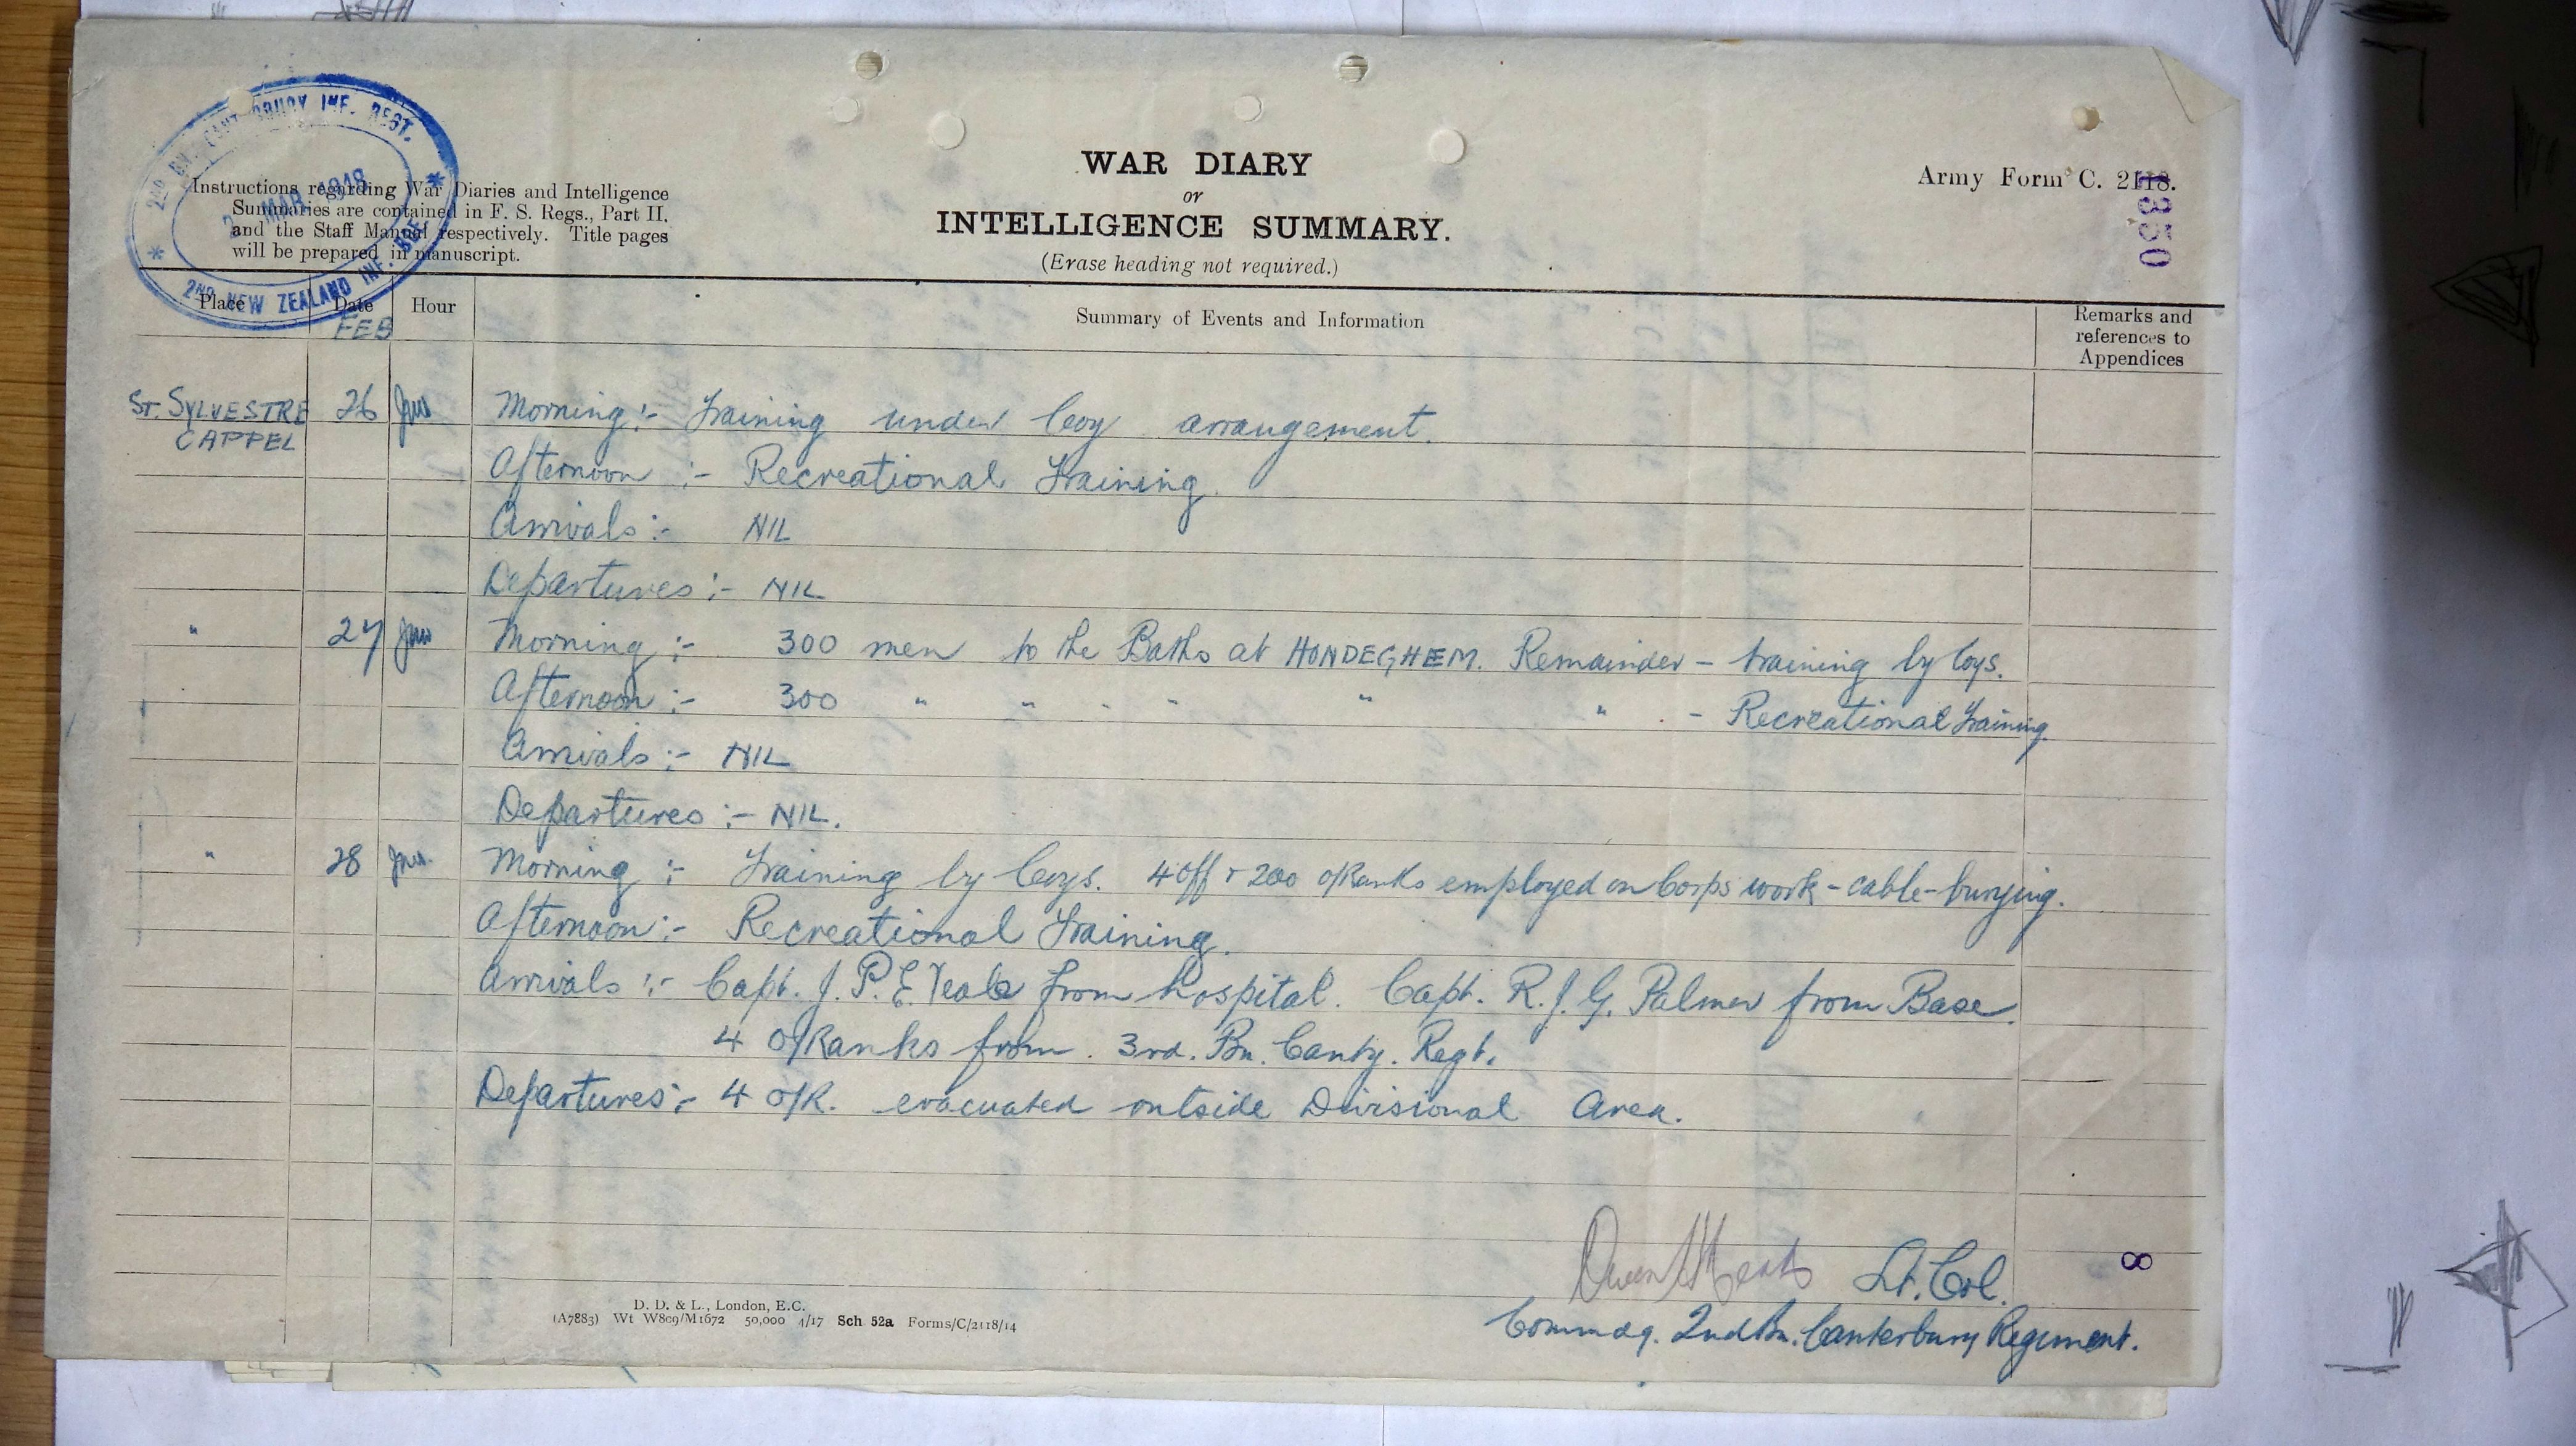 2ND BN. CANTERBURY INF. REGT.
MAR 1918
2ND NEW ZEALAND INF. BDE.
Instructions regarding War Diaries and Intelligence
Summaries are contained in F. S. Regs., Part II.
and the Staff Manual respectively. Title pages
will be prepared in manuscript.
WAR DIARY
or
INTELLIGENCE SUMMARY.
(Erase heading not required.)
Army Form C. 2118.
1350
Place Date Hour Summary of Events and Information Remarks and
references to
Appendices
FEB
ST. SYLVESTRE 26 Morning:- Training under Coy arrangement.
CAPPEL
Afternoon :- Recreational Training.
Arrivals :- NIL
Departures :- NIL
" 27 Morning :- 300 men to the Baths at HONDEGHEM. Remainder - training by Coys.
Afternoon :- 300 " " " " " " - Recreational Training.
Arrivals :- NIL
Departures :- NIL.
" 28 Morning :- Training by Coys. 4 Off & 200 O/Ranks employed on Corps work - cable-burying.
Afternoon :- Recreational Training.
Arrivals :- Capt. J. P. E. from hospital. Capt. R. J. G. Palmer from Base.
4 O/Ranks from 3rd. Bn. Canty. Regt.
Departures :- 4 O/R. evacuated outside Divisional Area.
Lt. Col.
Commdg. 2nd Bn. Canterbury Regiment.
8
D. D. & L., London, E.C.
(A7883) Wt W809/M1672 50,000 4/17 Sch. 52a Forms/C/2118/14